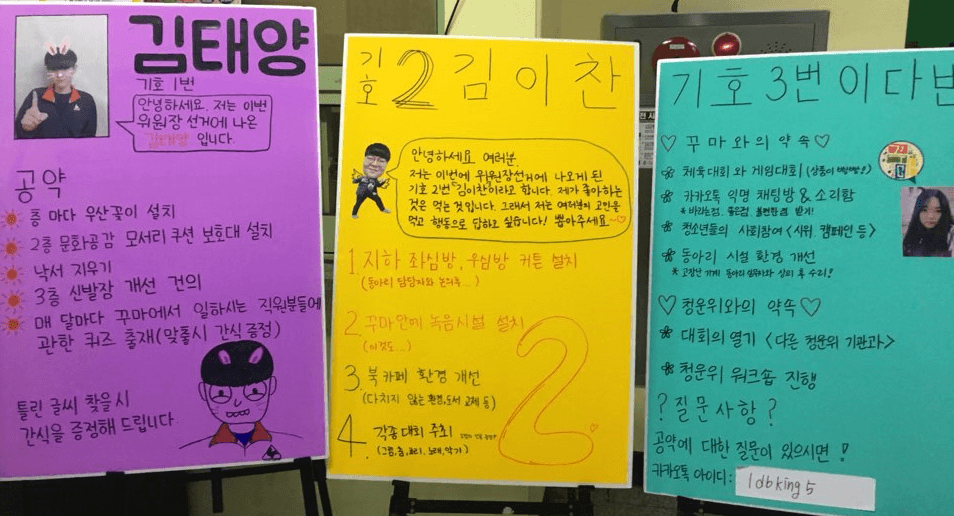 김태양
기호 1번
안녕하세요. 저는 이번
위원장 선거에 나온
김태양 입니다.
공약
층 마다 우산꽂이 설치
2층 문화공감 모서리 쿠션 보호대 설치
낙서 지우기
3층 신발장 개선 건의
매 달마다 꾸마에서 일하시는 직원분들에
관한 퀴즈 출재(맞출시 간식 증정)
틀린 글씨 찾을시
간식을 증정해 드립니다
기호 2 김이찬
안녕하세요 여러분.
저는 이번에 위원장선거에 나오게 된
기호 2번 김이찬이라고 합니다. 제가 좋아하는
것은 먹는 것입니다. 그래서 저는 여러분의 고민을
먹고 행동으로 답하고 싶습니다! 뽑아주세요~♡
1. 지하 좌심방, 우심방 커튼 설치
(동아리 담당자와 논의후...)
2. 꾸마안에 녹음시설 설치
(이것도...)
3. 북카페 환경 개선
(다치지 않는 환경, 도서 교체 등)
4. 각종 대회 주최
2
기호 3번 이다빈
♡ 꾸마와의 약속 ♡
체육대회 와 게임대회
카카오톡 익명 채팅방 & 소리함
청소년들의 사회참여 <시위. 캠페인 등>
동아리 시설 환경 개선
♡ 청운위와의 약속 ♡
대회의 열기 <다른 청운위 기관과>
청운위 워크숍 진행
? 질문사항 ?
공약에 대한 질문이 있으시면 !
카카오톡 아이디: ldbking5